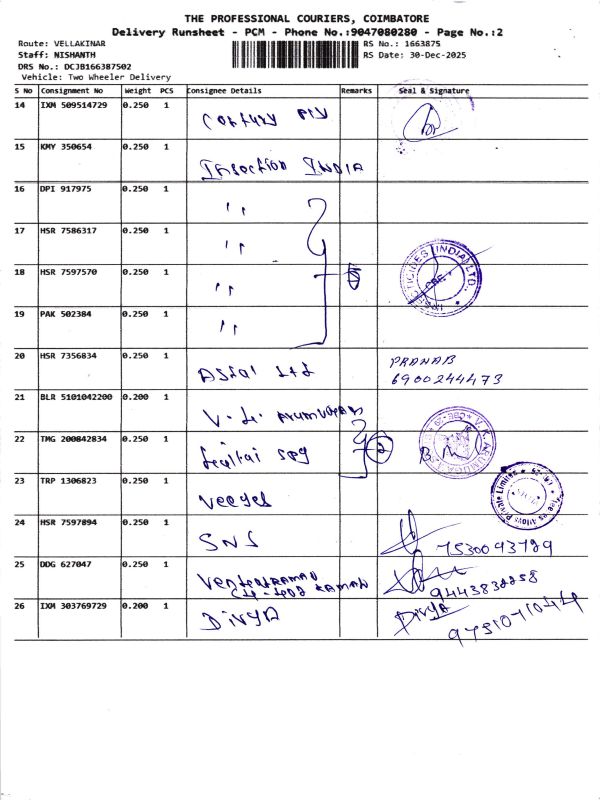 THE PROFESSIONAL COURIERS, COIMBATORE
Delivery Runsheet - PCM - Phone No.:9047080280 - Page No.:2
Route: VELLAKINAR
RS No.: 1663875
Staff: NISHANTH
RS Date: 30-Dec-2025
DRS No.: DCJB1663B7502
Vehicle: Two Wheeler Delivery
S No Consignment No Weight PCS Consignee Details Remarks Seal & Signature
14 IXM 509514729 0.250 1 Century Ply
15 KMY 350654 0.250 1 INDIA
16 DPI 917975 0.250 1 ''
17 HSR 7586317 0.250 1 ''
18 HSR 7597570 0.250 1 '' 5
INSECTICIDES (INDIA) LTD. CBE
19 PAK 502384 0.250 1 ''
20 HSR 7356834 0.250 1 Ltd PRANAB
6900244473
21 BLR 5101042200 0.200 1
22 TMG 200842834 0.250 1 2
23 TRP 1306823 0.250 1 Veeyes
Private Limited
24 HSR 7597894 0.250 1 SNS 7530093789
25 DDG 627047 0.250 1 Venkatraman
26 IXM 303769729 0.200 1 DivyA DivyA